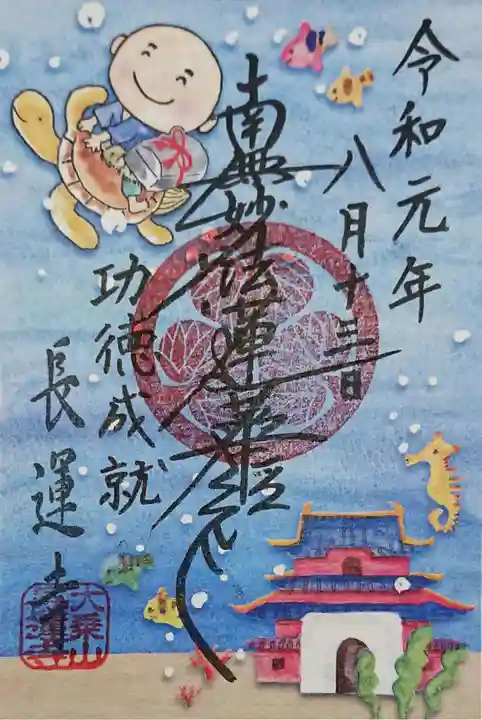 令和元年
八月十三日
南無妙法蓮華経
功徳成就
長運寺
大乗山